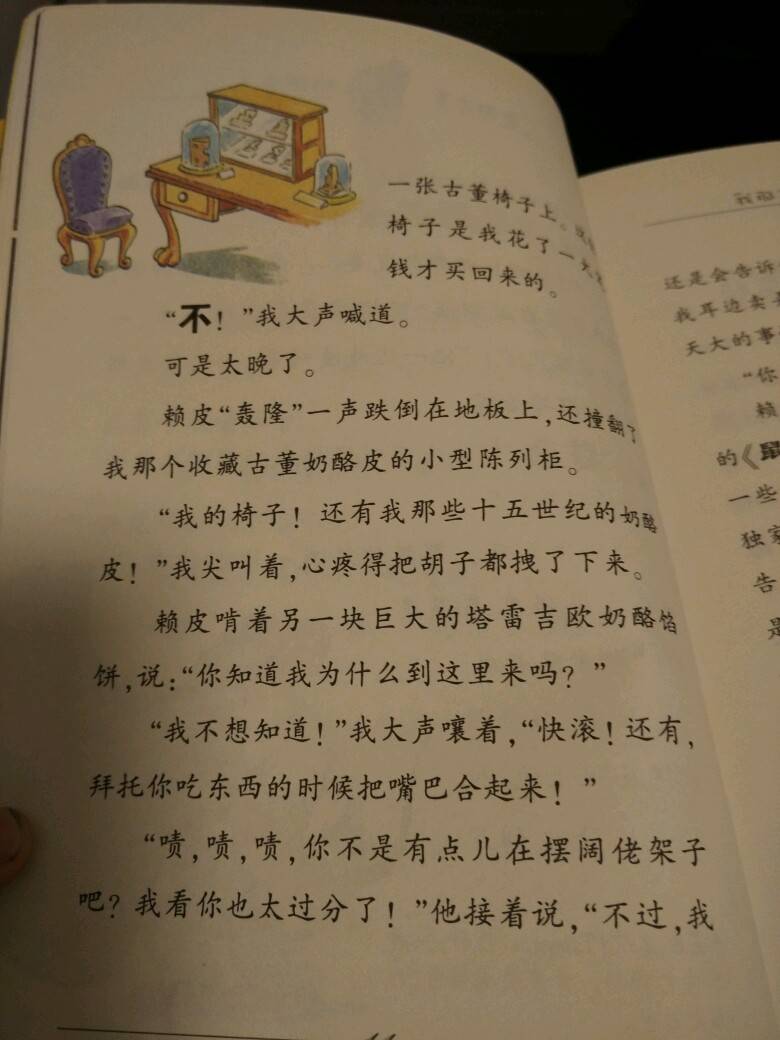 一张古董椅子上。
椅子是我花了一大
钱才买回来的。
“不！”我大声喊道。
可是太晚了。
赖皮“轰隆”一声跌倒在地板上，还撞翻了
我那个收藏古董奶酪皮的小型陈列柜。
“我的椅子！还有我那些十五世纪的奶酪
皮！”我尖叫着，心疼得把胡子都拽了下来。
赖皮啃着另一块巨大的塔雷吉欧奶酪馅
饼，说：“你知道我为什么到这里来吗？”
“我不想知道！”我大声嚷着，“快滚！还有，
拜托你吃东西的时候把嘴巴合起来！”
“啧，啧，啧，你不是有点儿在摆阔佬架子
吧？我看你也太过分了！”他接着说，“不过，我
还是会告诉
我耳边卖
天大的事
“你
赖
的《鼠
一些
独家
告
是